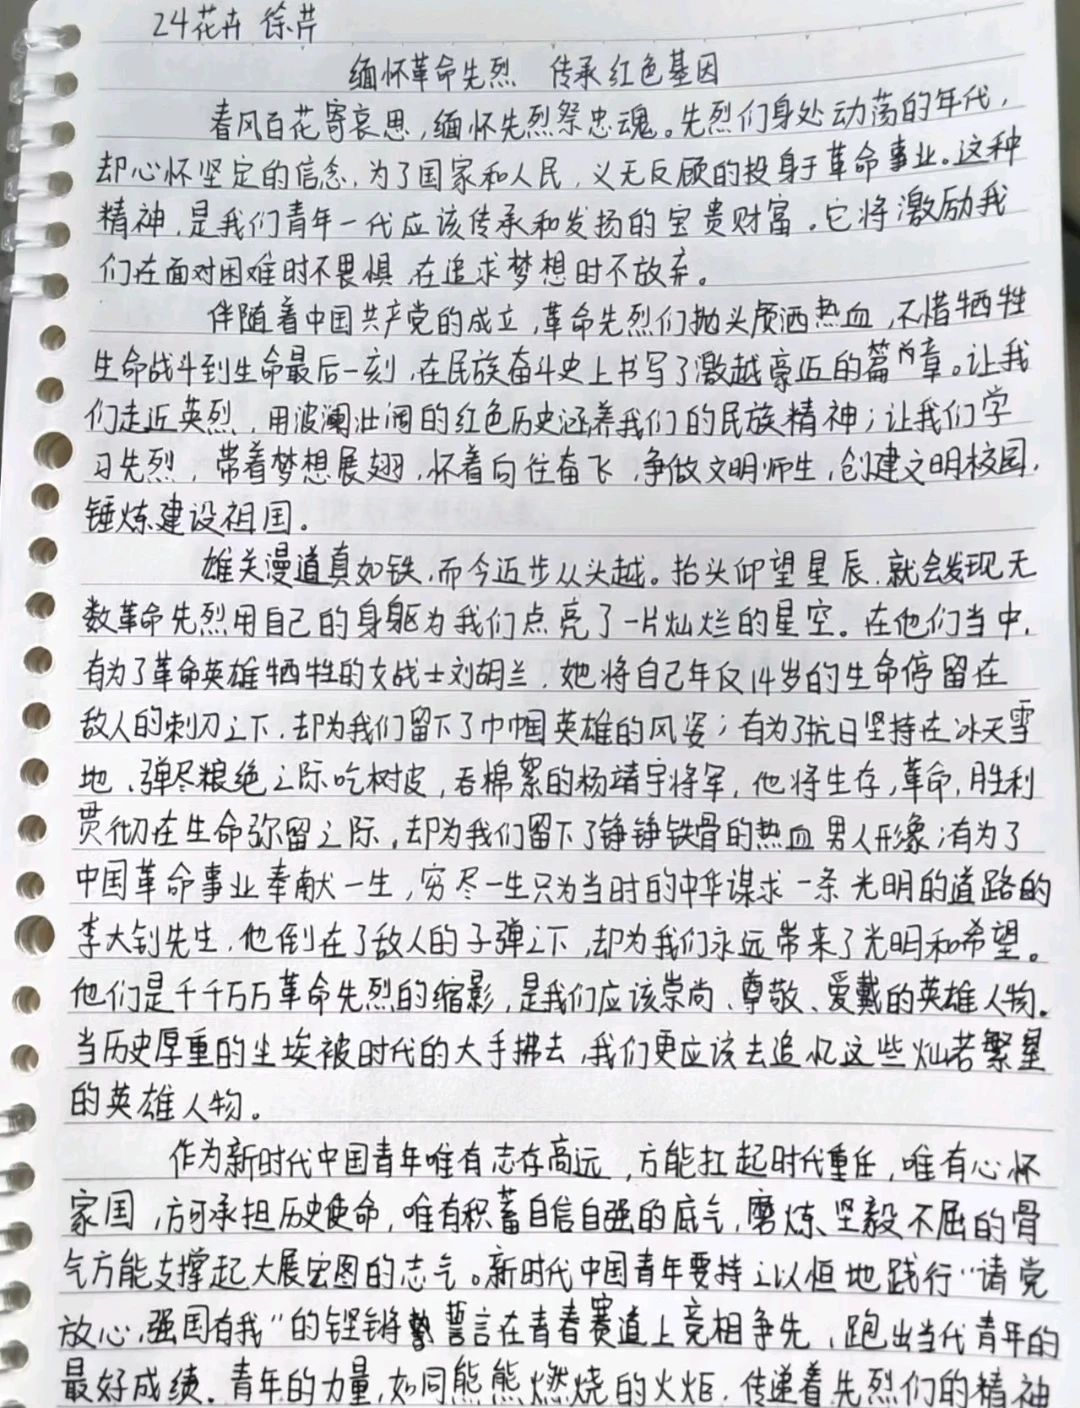 24花卉 徐芹
缅怀革命先烈 传承红色基因
春风百花寄哀思,缅怀先烈祭忠魂。先烈们身处动荡的年代,
却心怀坚定的信念,为了国家和人民,义无反顾的投身于革命事业。这种
精神,是我们青年一代应该传承和发扬的宝贵财富。它将激励我
们在面对困难时不畏惧,在追求梦想时不放弃。
伴随着中国共产党的成立,革命先烈们抛头颅洒热血,不惜牺牲
生命战斗到生命最后一刻,在民族奋斗史上书写了激越豪迈的篇章。让我
们走近英烈,用波澜壮阔的红色历史涵养我们的民族精神;让我们学
习先烈,带着梦想展翅,怀着向往奋飞,争做文明师生,创建文明校园,
锤炼建设祖国。
雄关漫道真如铁,而今迈步从头越。抬头仰望星辰,就会发现无
数革命先烈用自己的身躯为我们点亮了一片灿烂的星空。在他们当中,
有为了革命英雄牺牲的女战士刘胡兰,她将自己年仅14岁的生命停留在
敌人的刺刀之下,却为我们留下了巾帼英雄的风姿;有为了抗日坚持在冰天雪
地、弹尽粮绝之际吃树皮,吞棉絮的杨靖宇将军,他将生存,革命,胜利
贯彻在生命弥留之际,却为我们留下了铮铮铁骨的热血男人形象;有为了
中国革命事业奉献一生,穷尽一生只为当时的中华谋求一条光明的道路的
李大钊先生,他倒在了敌人的子弹之下,却为我们永远带来了光明和希望。
他们是千千万万革命先烈的缩影,是我们应该崇尚、尊敬、爱戴的英雄人物。
当历史厚重的尘埃被时代的大手拂去,我们更应该去追忆这些灿若繁星
的英雄人物。
作为新时代中国青年唯有志存高远,方能扛起时代重任,唯有心怀
家国,方可承担历史使命,唯有积蓄自信自强的底气,磨炼坚毅不屈的骨
气方能支撑起大展宏图的志气。新时代中国青年要持之以恒地践行“请党
放心,强国有我”的铿锵誓言在青春赛道上竞相争先,跑出当代青年的
最好成绩。青年的力量,如同熊熊燃烧的火炬,传递着先烈们的精神